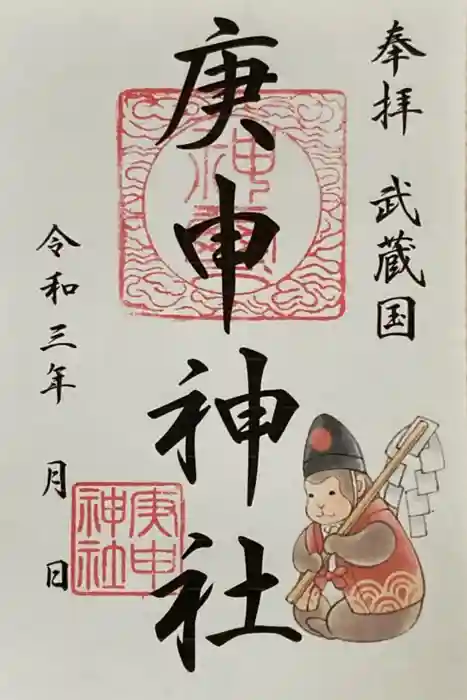 奉拝 武蔵国
庚申神社
神璽
令和三年 月 日
庚申
神社